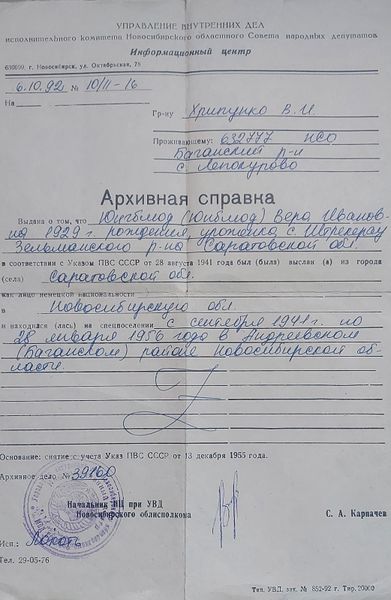 УПРАВЛЕНИЕ ВНУТРЕННИХ ДЕЛ
исполнительного комитета Новосибирского областного Совета народных депутатов
Информационный центр
630099, г. Новосибирск, ул. Октябрьская, 78
6.10.92 № 10/II-16
На
Гр-ну Хрипунко В.И.
Проживающему: 632777 НСО
Баганский р-н
с. Лепокурово
Архивная справка
Выдана о том, что Юнгблюд (Юнблюд) Вера Иванов-
на 1929 г. рождения, уроженка с.
Зельманского р-на Саратовской обл.
в соответствии с Указом ПВС СССР от 28 августа 1941 года был (была) выслан (а) из города
(села) Саратовской обл.
как лицо немецкой национальности
в Новосибирскую обл.
и находился (лась) на спецпоселении с сентября 1941 г. по
28 января 1956 года в Андреевском
(Баганском) районе Новосибирской об-
ласти.
Основание: снятие с учета Указ ПВС СССР от 13 декабря 1955 года.
Архивное дело № 39160
Начальник ИЦ при УВД
Новосибирского облисполкома
С. А. Карпачев
Исп.:
Тел. 29-05-76
Тип. УВД, зак. № 852-92 г. Тир. 20000